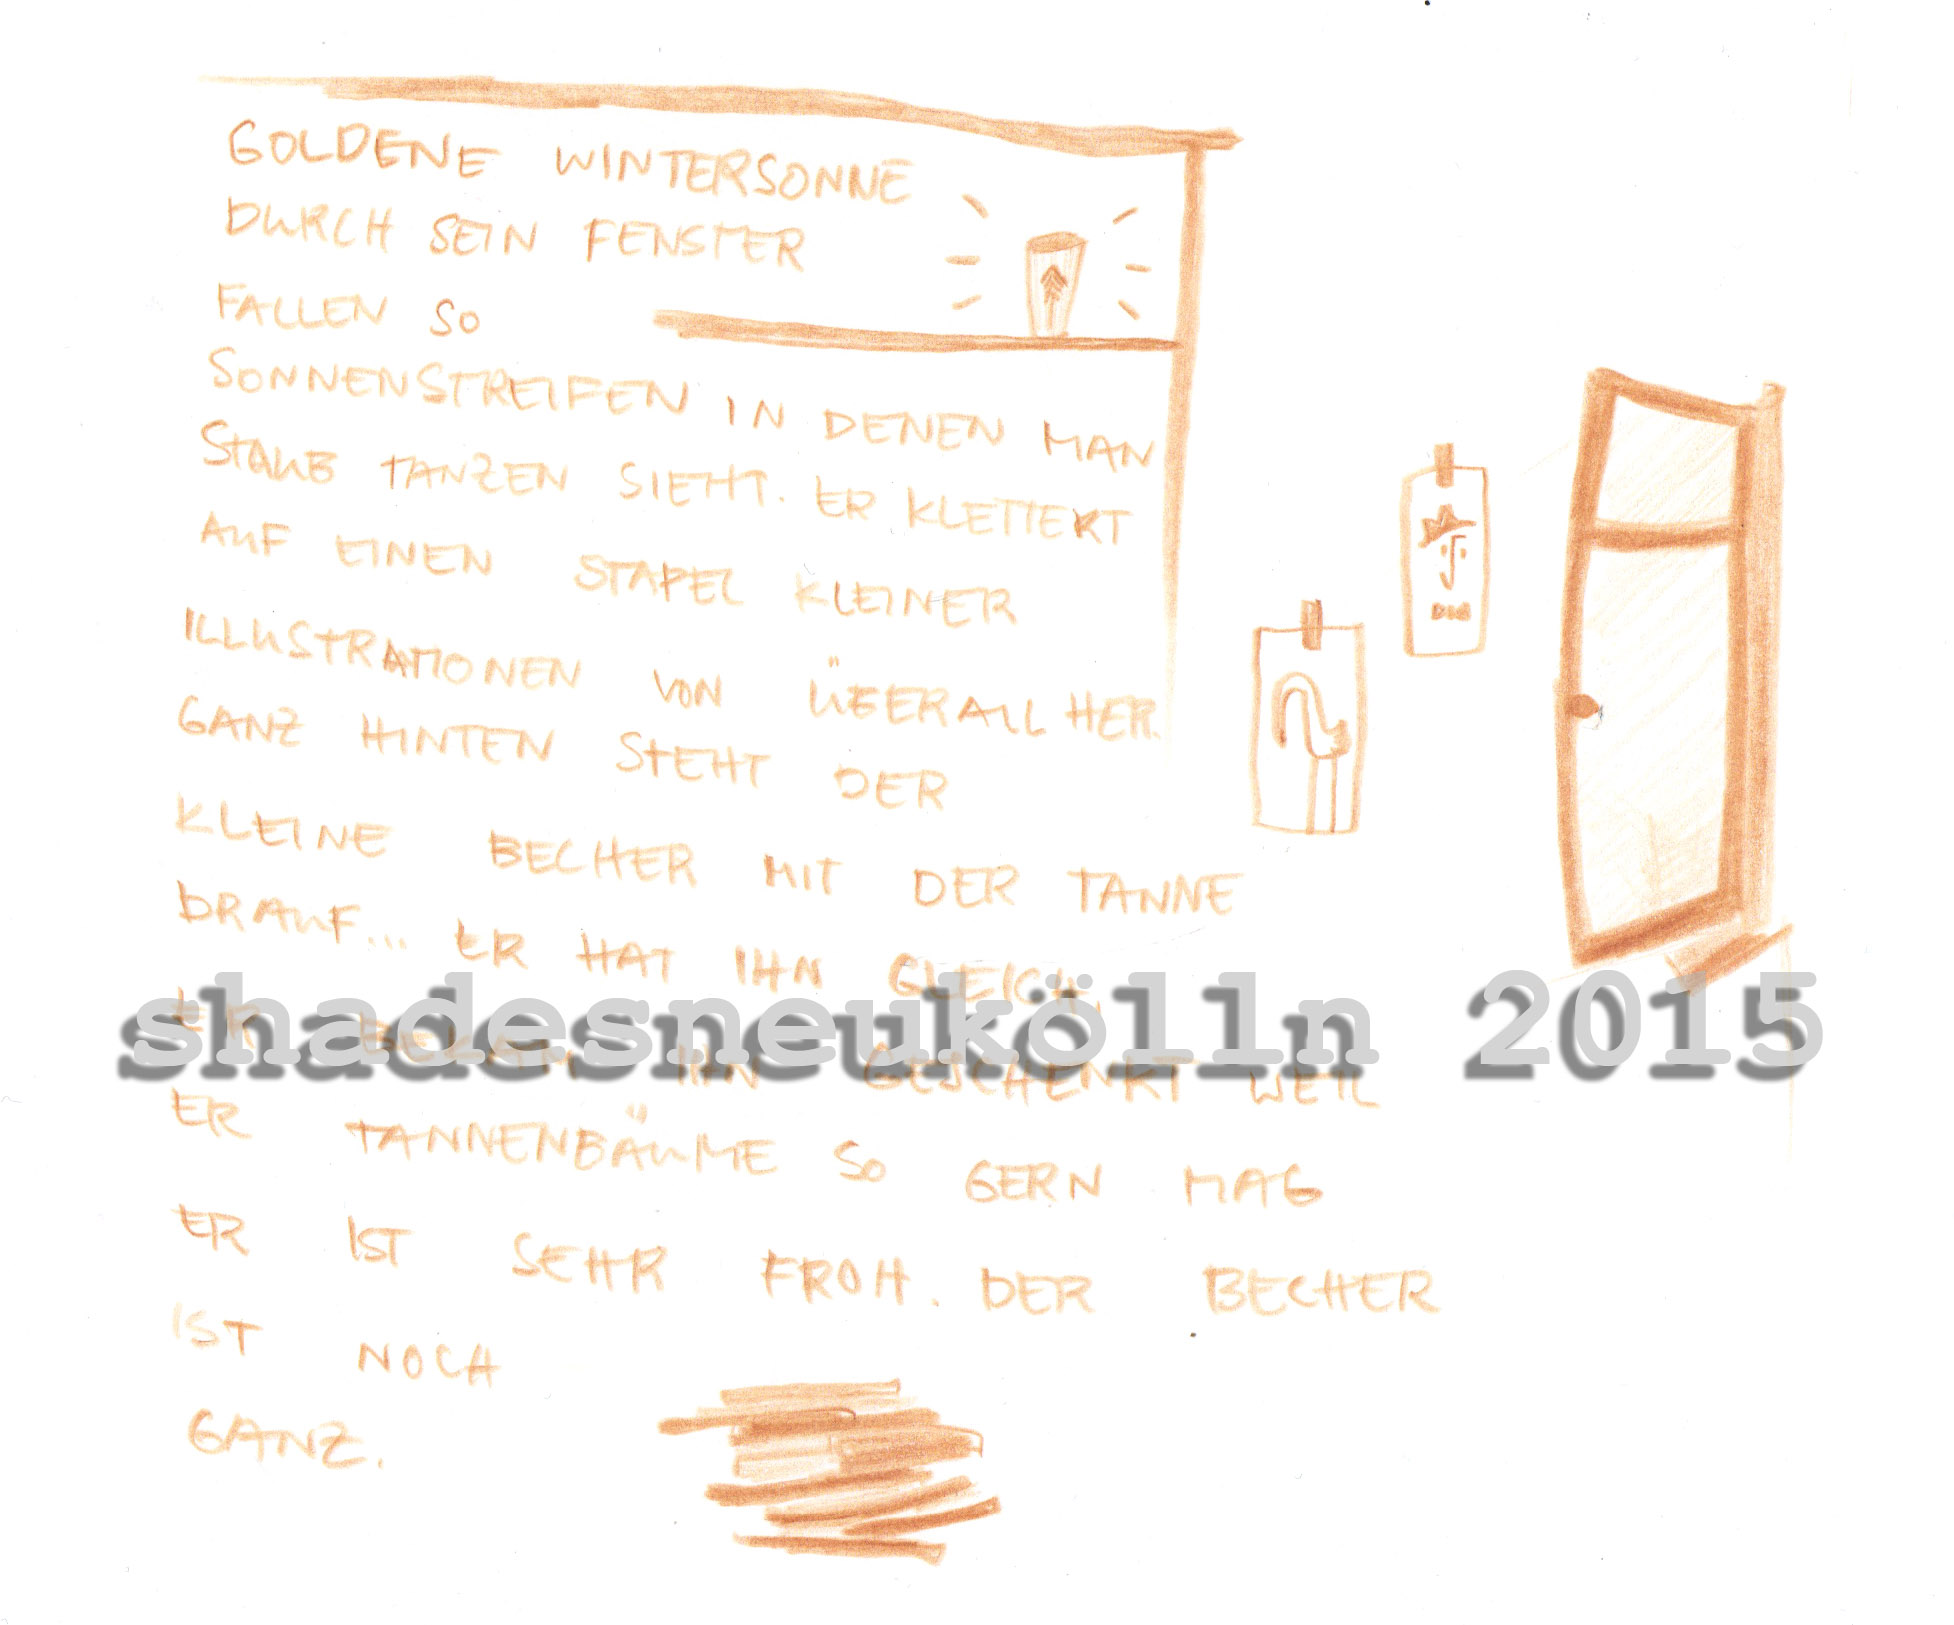 GOLDENE WINTERSONNE
DURCH SEIN FENSTER
FALLEN SO
SONNENSTREIFEN IN DENEN MAN
STAUB TANZEN SIEHT. ER KLETTERT
AUF EINEN STAPEL KLEINER
ILLUSTRATIONEN VON ÜBERALL HER.
GANZ HINTEN STEHT DER
KLEINE BECHER MIT DER TANNE
DRAUF... ER HAT IHN GLEICH.
shadesneukölln 2015
ER BEKAM IHN GESCHENKT WEIL
ER TANNENBÄUME SO GERN MAG
ER IST SEHR FROH. DER BECHER
IST NOCH
GANZ.